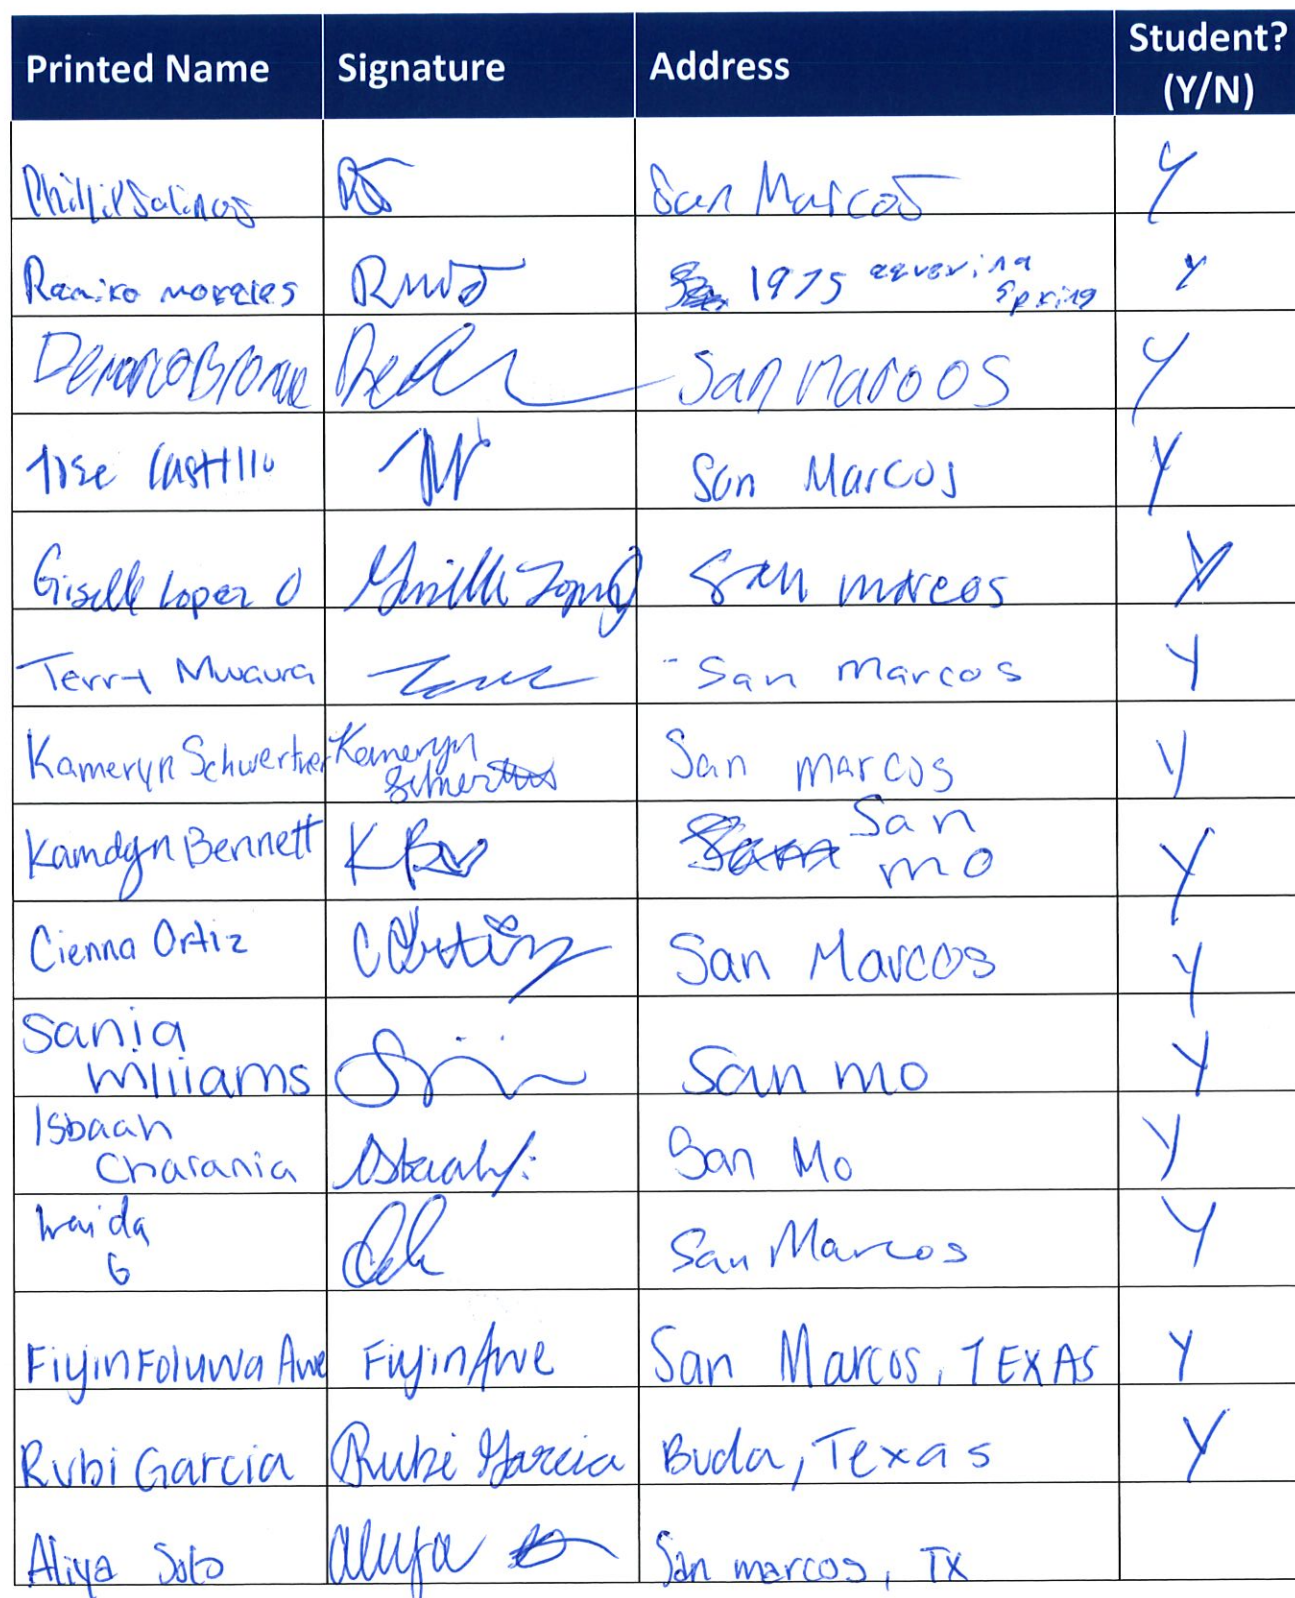 Printed Name Signature Address Student? (Y/N)
Phillip Salinas San Marcos Y
Ramiro morales 1975 aquarena spring Y
San Marcos Y
Jose Castillo San Marcos Y
Giselle Lopez O Giselle Lopez San marcos Y
Terry Mwaura San marcos Y
Kameryn Schwertner Kameryn San marcos Y
Kamdyn Bennett San mo Y
Cienna Ortiz C Ortiz San Marcos Y
Sania Williams San mo Y
Isbaah Charania San Mo Y
San Marcos Y
Fiyinfoluwa Awe Fiyin Awe San Marcos, TEXAS Y
Rubi Garcia Rubi Garcia Buda, Texas Y
Aliya Soto Aliya San marcos, TX